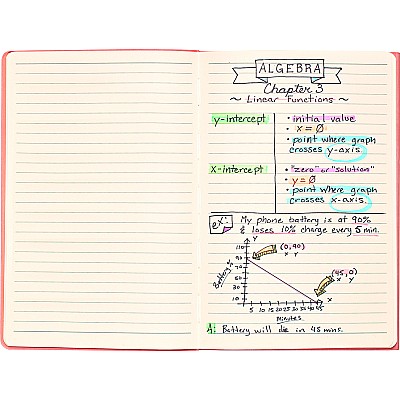 ALGEBRA
Chapter 3
~ Linear Functions ~
y-intercept
• initial value
• x = Ø
• point where graph
crosses y-axis.
x-intercept
• "zero" or "solution"
• y = Ø
• point where graph
crosses x-axis.
ex: My phone battery is at 90%
& loses 10% charge every 5 min.
Battery %
y
110
90
70
50
30
10
(0,90)
x y
(45,0)
x y
x
5 10 15 20 25 30 35 40 45
Minutes
A: Battery will die in 45 mins.